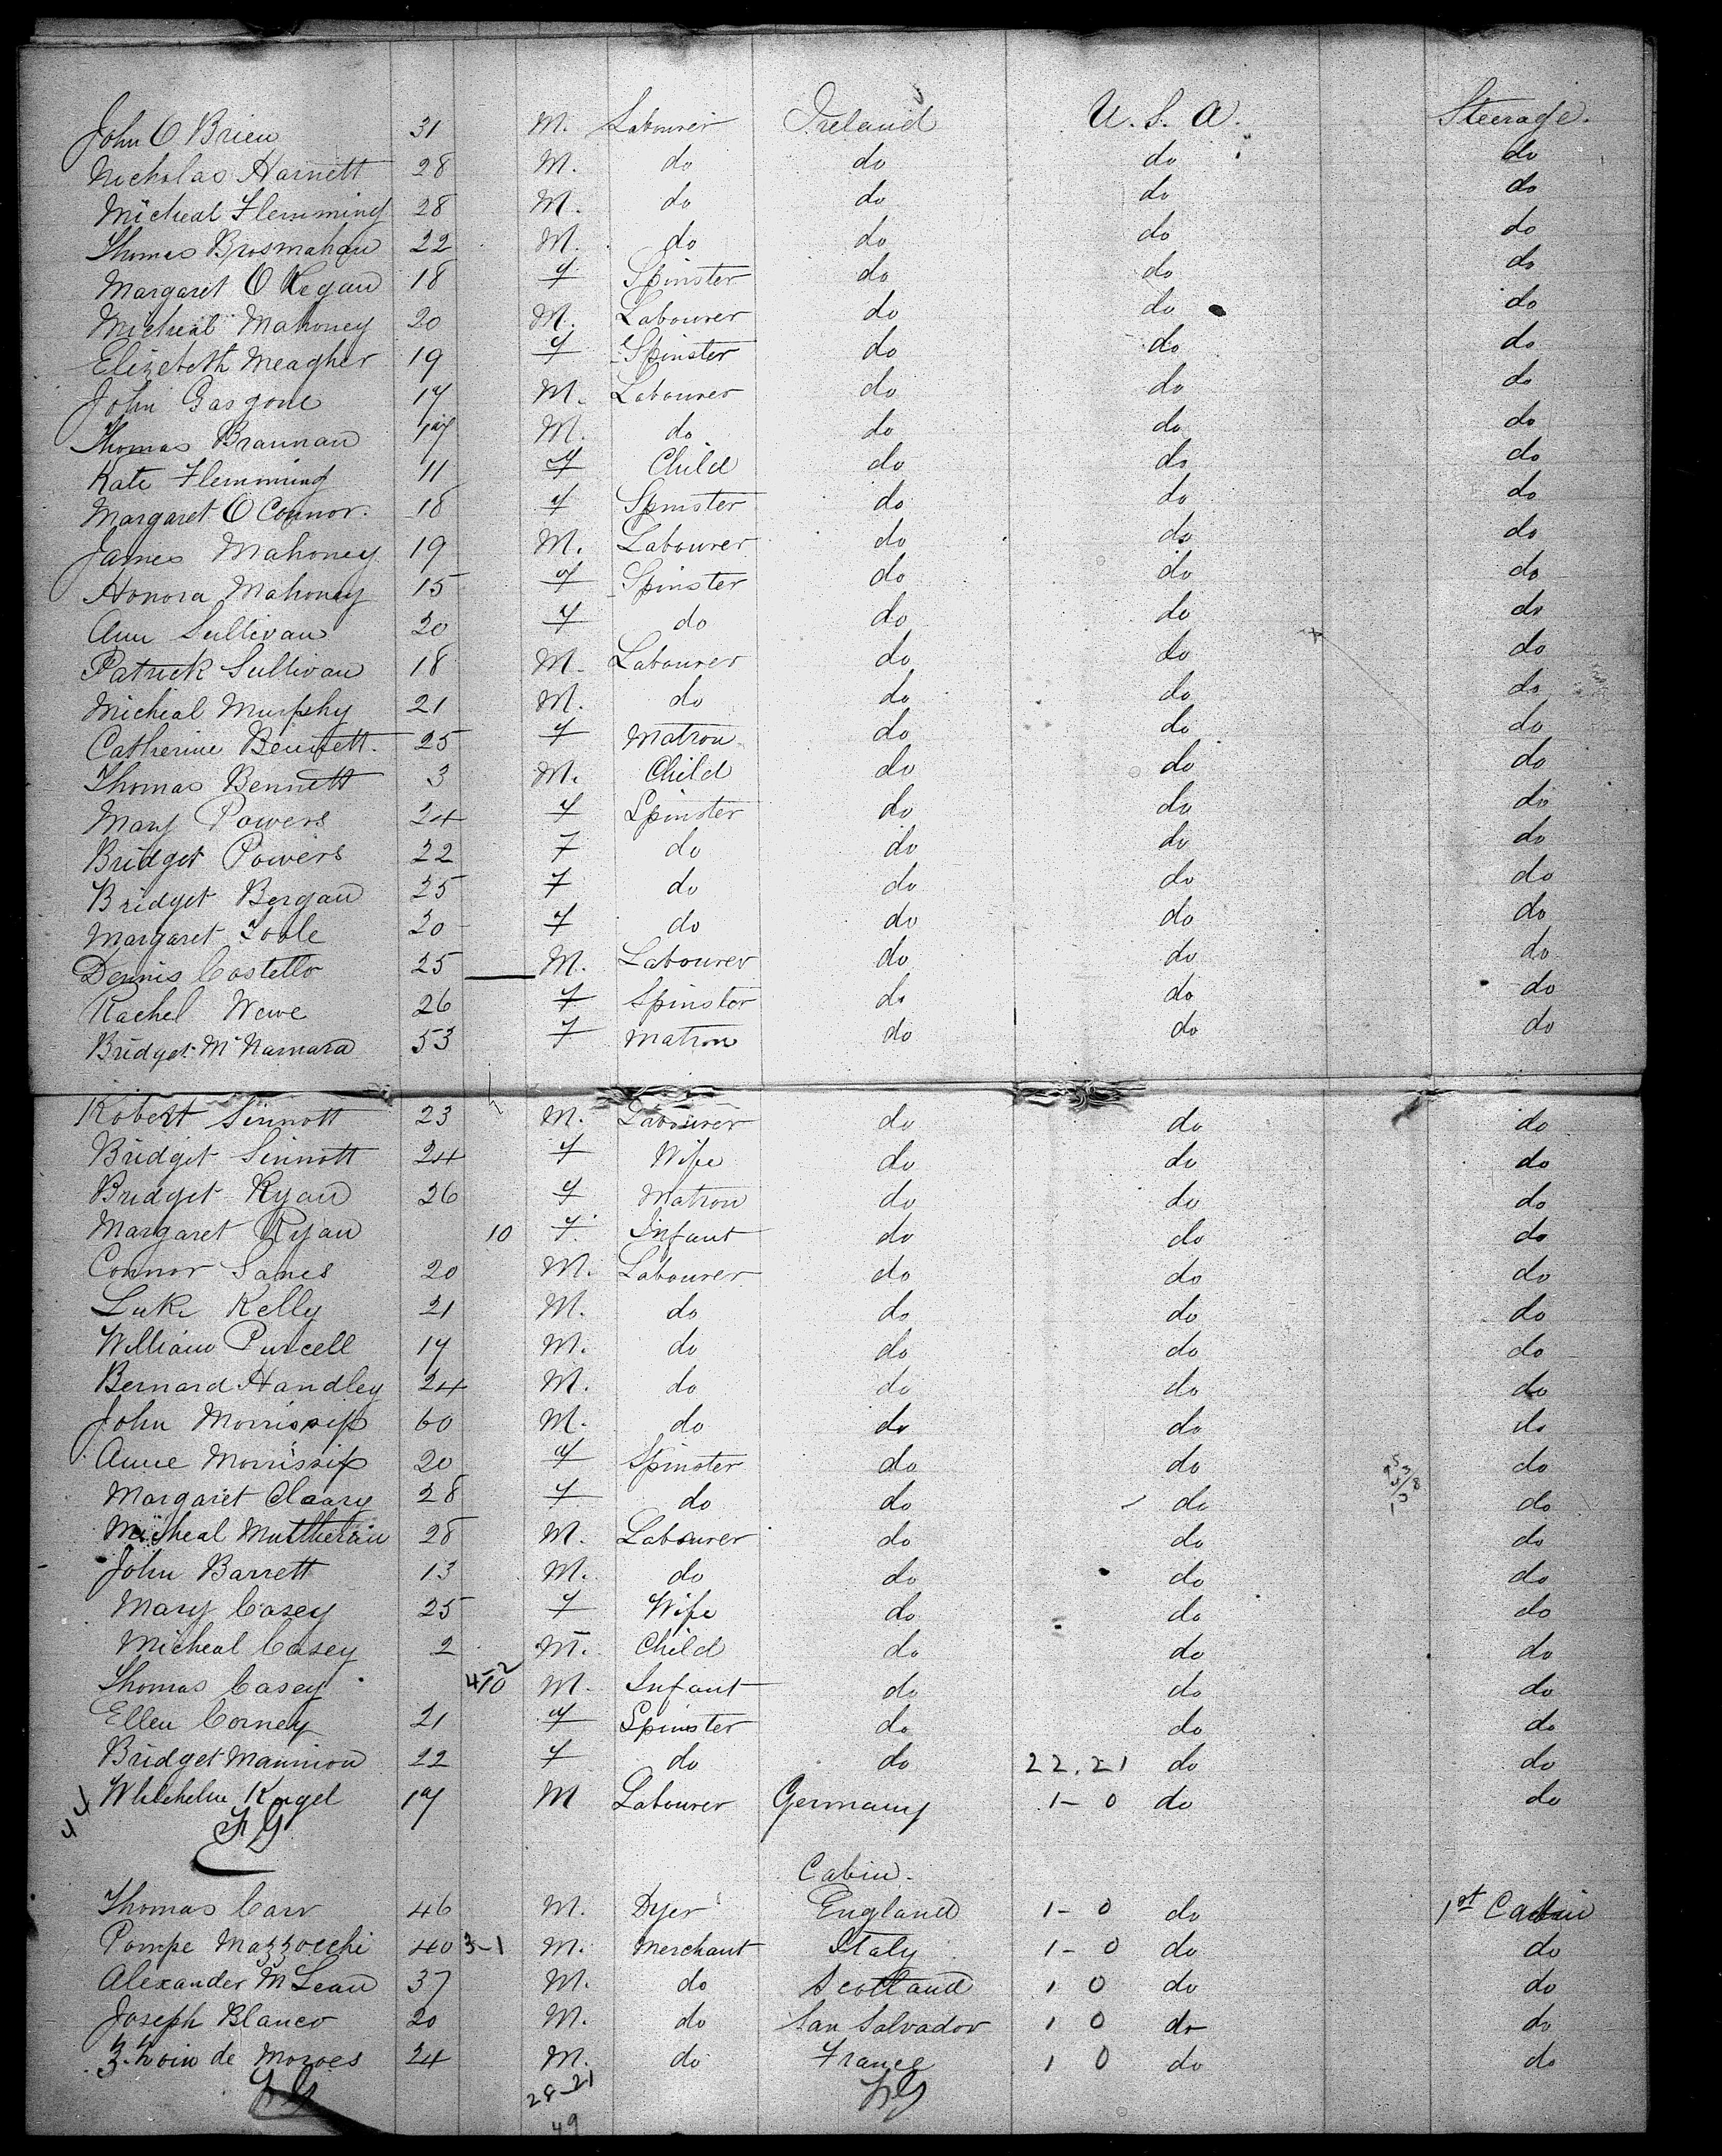 John O Brien 31 M. Labourer Ireland U. S. A. Steerage.
Nicholas Harnett 28 M. do do do do
Micheal Flemming 28 M. do do do do
Thomas Brosmahan 22 M. do do do do
Margaret O Regan 18 F Spinster do do do
Micheal Mahoney 20 M. Labourer do do do
Elizebeth Meagher 19 F Spinster do do do
John Gasgone 17 M. Labourer do do do
Thomas Brannan 17 M. do do do do
Kate Flemming 11 F Child do do do
Margaret O Connor. 18 F Spinster do do do
James Mahoney 19 M. Labourer do do do
Honora Mahoney 15 F Spinster do do do
Ann Sullivan 20 F do do do do
Patrick Sullivan 18 M. Labourer do do do
Micheal Murphy 21 M. do do do do
Catherine Bennett. 25 F Matron do do do
Thomas Bennett 3 M. Child do do do
Mary Powers 24 F Spinster do do do
Bridget Powers 22 F do do do do
Bridget Bergan 25 F do do do do
Margaret Toole 20 F do do do do
Dennis Costello 25 M. Labourer do do do
Rachel 26 F Spinster do do do
Bridget McNamara 53 F Matron do do do
Robert Sinnott 23 M. Labourer do do do
Bridget Sinnott 24 F Wife do do do
Bridget Ryan 26 F Matron do do do
Margaret Ryan 10 F. Infant do do do
Connor Sanes 20 M. Labourer do do do
Luke Kelly 21 M. do do do do
William Purcell 17 M. do do do do
Bernard Handley 24 M. do do do do
John 60 M. do do do do
Anne 20 F Spinster do do do
Margaret Claary 28 F do do do do
Micheal 28 M. Labourer do do do
John Barrett 13 M. do do do do
Mary Casey 25 F Wife do do do
Micheal Casey 2 M. Child do do do
Thomas Casey M. Infant do do do
Ellen Corney 21 F Spinster do do do
Bridget Mannion 22 F do do 22.21 do do
Kugel 17 M Labourer Germany 1-0 do do
44
Cabin.
Thomas Carr 46 M. Dyer England 1-0 do 1st Cabin
Pompe Mazzocchi 40 3-1 M. Merchant Italy 1-0 do do
Alexander McLean 37 M. do Scotland 1 0 do do
Joseph Blanco 20 M. do San Salvador 1 0 do do
de 24 M. do France 1 0 do do
28-21
49